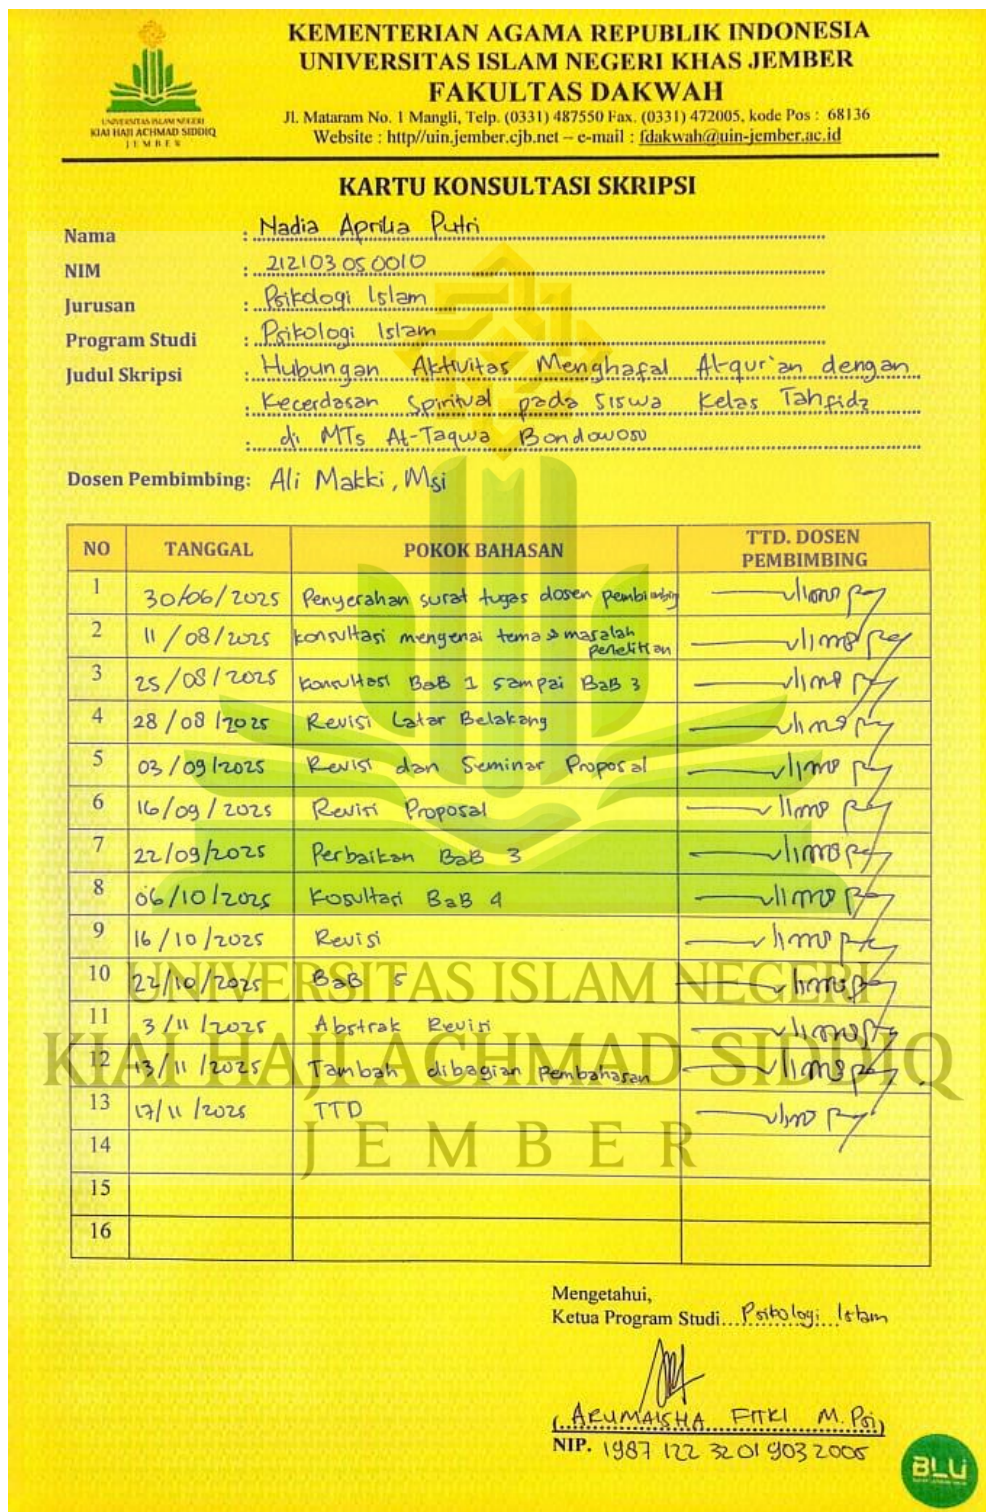 KEMENTERIAN AGAMA REPUBLIK INDONESIA
UNIVERSITAS ISLAM NEGERI KHAS JEMBER
FAKULTAS DAKWAH
Jl. Mataram No. 1 Mangli, Telp. (0331) 487550 Fax. (0331) 472005, kode Pos : 68136
Website : http//uin.jember.cjb.net – e-mail : fdakwah@uin-jember.ac.id
UNIVERSITAS ISLAM NEGERI
KIAI HAJI ACHMAD SIDDIQ
JEMBER
KARTU KONSULTASI SKRIPSI
Nama : Nadia Aprilia Putri
NIM : 212103050010
Jurusan : Psikologi Islam
Program Studi : Psikologi Islam
Judul Skripsi : Hubungan Aktivitas Menghafal Al-qur'an dengan
: Kecerdasan Spiritual pada Siswa Kelas Tahfidz
: di MTs At-Taqwa Bondowoso
Dosen Pembimbing: Ali Makki, Msi
NO TANGGAL POKOK BAHASAN TTD. DOSEN PEMBIMBING
1 30/06/2025 Penyerahan surat tugas dosen pembimbing
2 11/08/2025 konsultasi mengenai tema & masalah penelitian
3 25/08/2025 Konsultasi BaB 1 sampai BaB 3
4 28/08/2025 Revisi Latar Belakang
5 03/09/2025 Revisi dan Seminar Proposal
6 16/09/2025 Revisi Proposal
7 22/09/2025 Perbaikan BaB 3
8 06/10/2025 Kosultasi BaB 4
9 16/10/2025 Revisi
10 22/10/2025 BaB 5
11 3/11/2025 Abstrak Revisi
12 13/11/2025 Tambah dibagian Pembahasan
13 17/11/2025 TTD
14
15
16
UNIVERSITAS ISLAM NEGERI
KIAI HAJI ACHMAD SIDDIQ
JEMBER
Mengetahui,
Ketua Program Studi Psikologi Islam
( ARUMAISHA FITRI M.Psi )
NIP. 198712232019032005
BLU